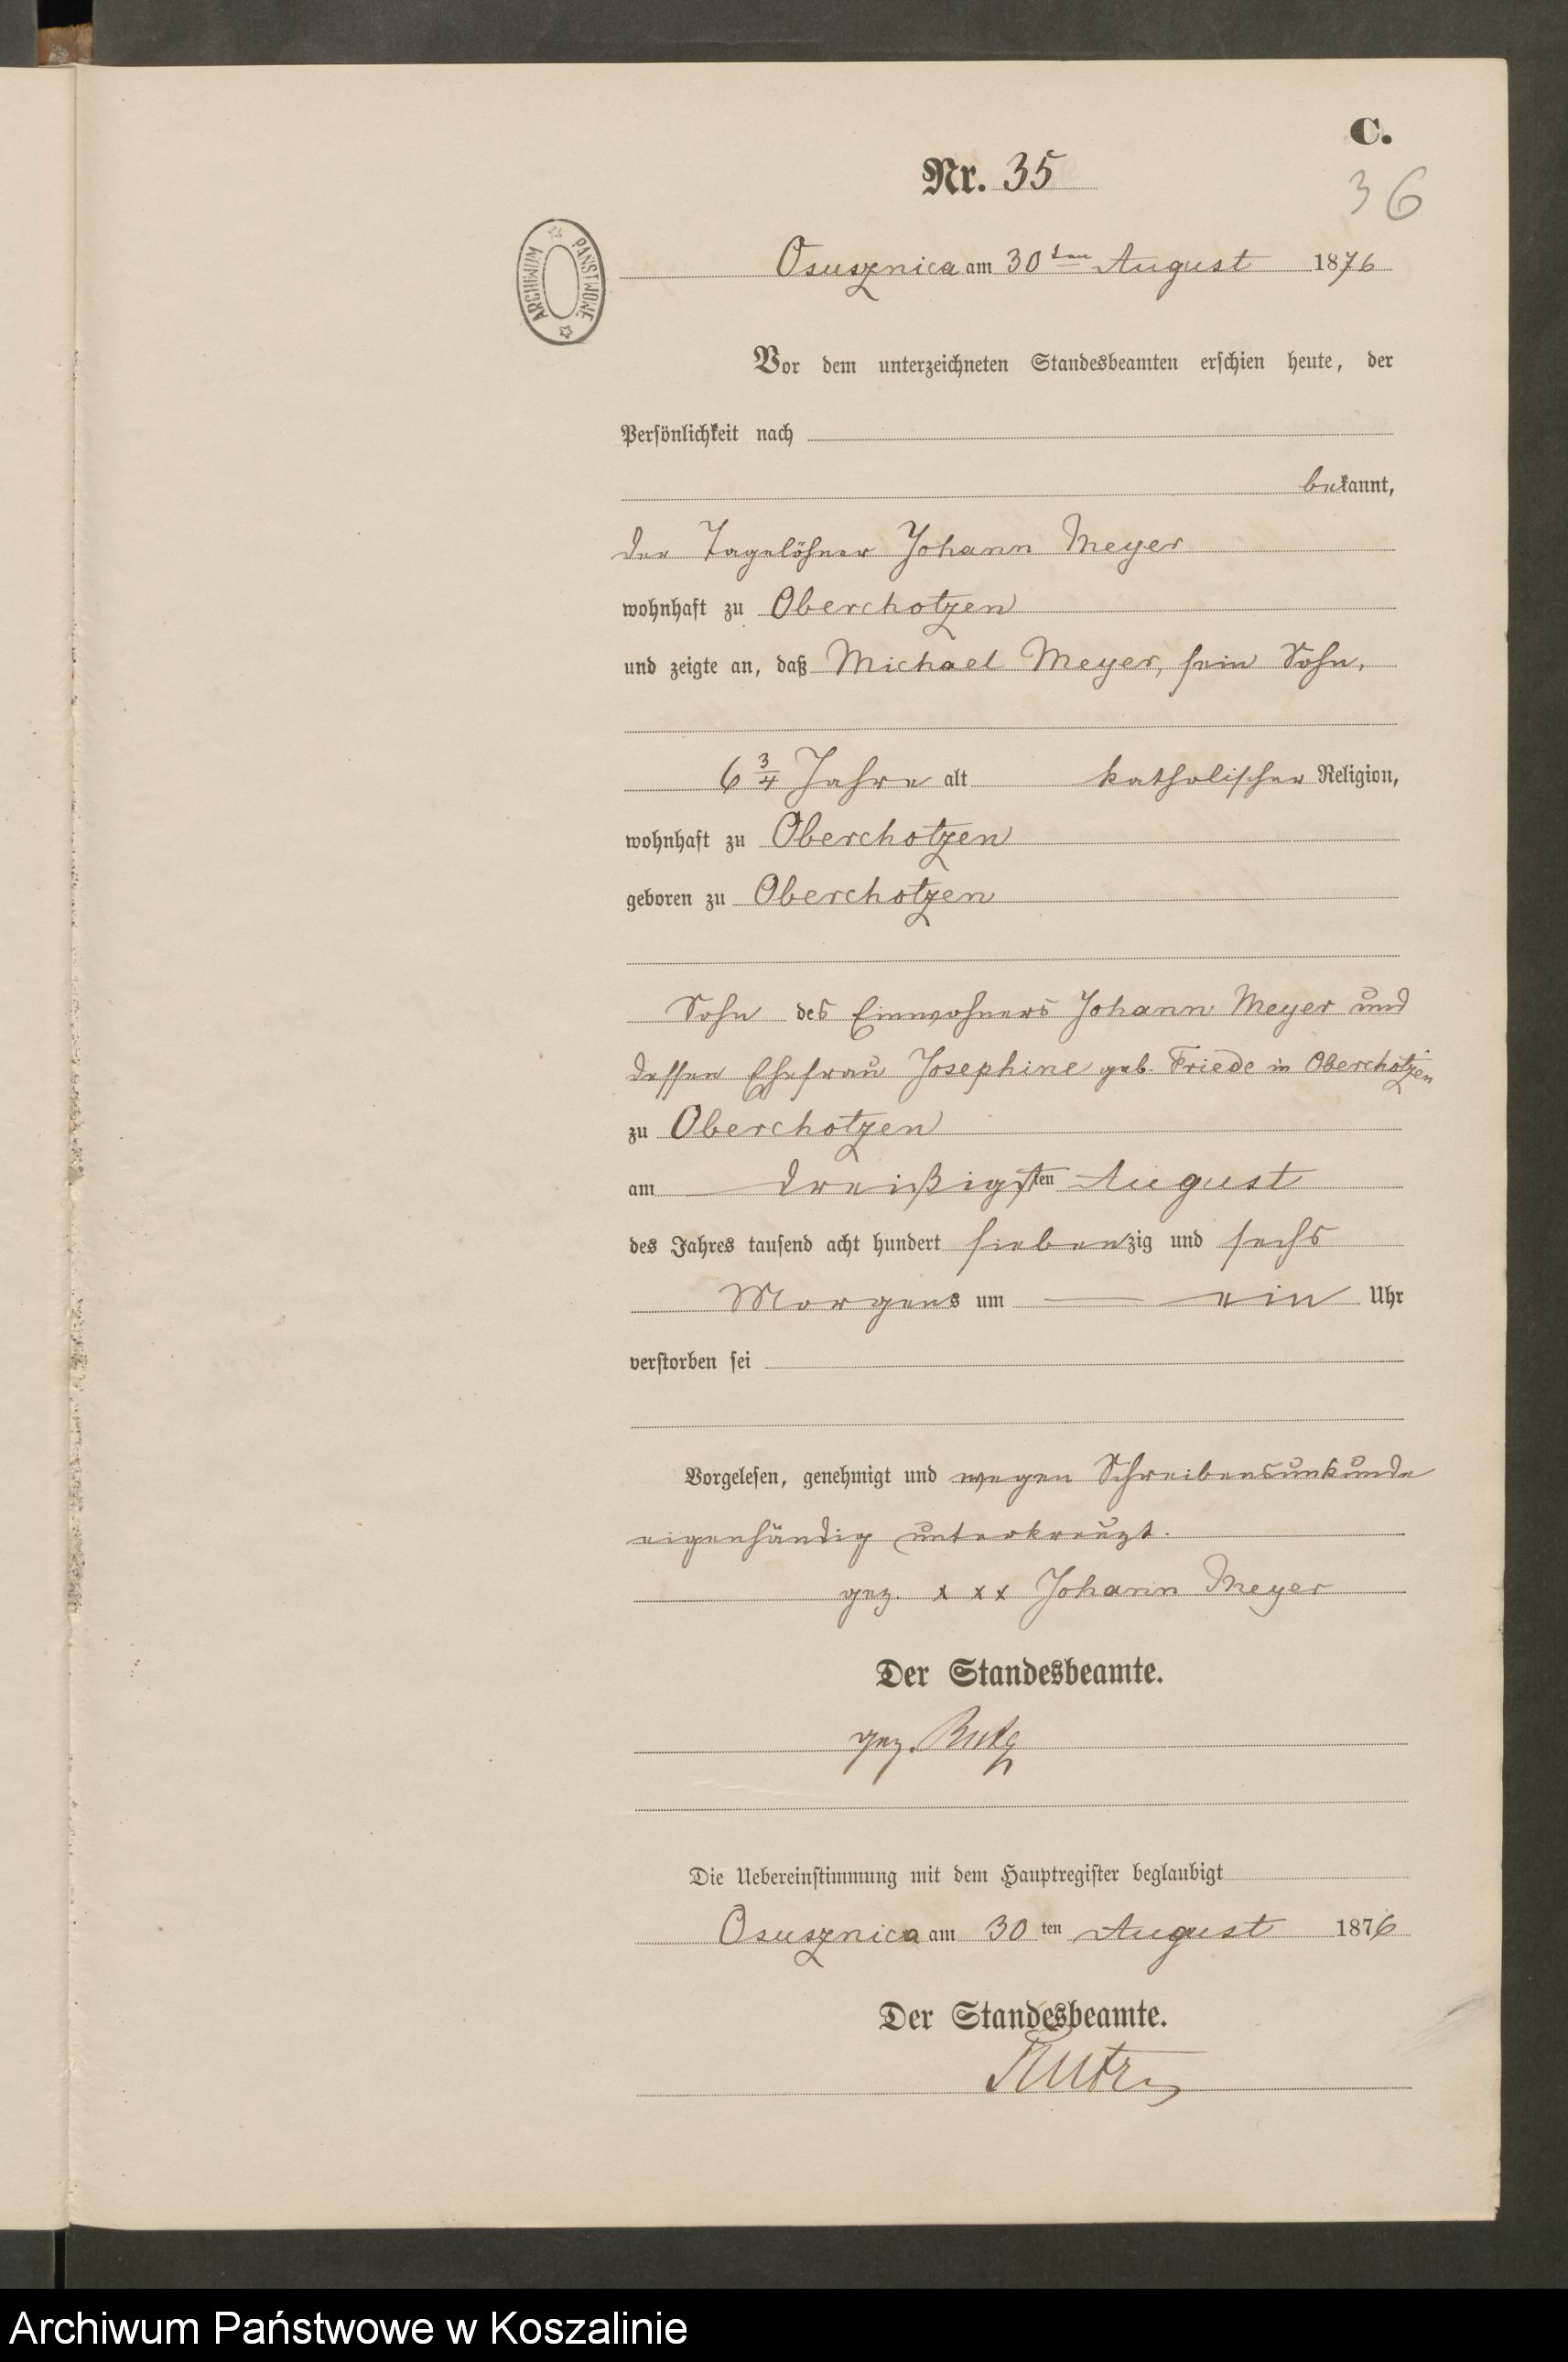 C.
Nr. 35
36
ARCHIWUM PAŃSTWOWE
Osusznica am 30ten August 1876
Vor dem unterzeichneten Standesbeamten erschien heute, der
Persönlichkeit nach
bekannt,
der Tagelöhner Johann Meyer
wohnhaft zu Oberchotzen
und zeigte an, daß Michael Meyer, sein Sohn,
6 3/4 Jahre alt katholischer Religion,
wohnhaft zu Oberchotzen
geboren zu Oberchotzen
Sohn des Einwohners Johann Meyer und
dessen Ehefrau Josephine geb. Friede in Oberchotzen
zu Oberchotzen
am dreißigsten August
des Jahres tausend acht hundert siebenzig und sechs
Morgens um ein Uhr
verstorben sei
Vorgelesen, genehmigt und wegen Schreibensunkunde
eigenhändig unterkreuzt.
gez. x x x Johann Meyer
Der Standesbeamte.
gez.
Die Uebereinstimmung mit dem Hauptregister beglaubigt
Osusznica am 30ten August 1876
Der Standesbeamte.
Archiwum Państwowe w Koszalinie